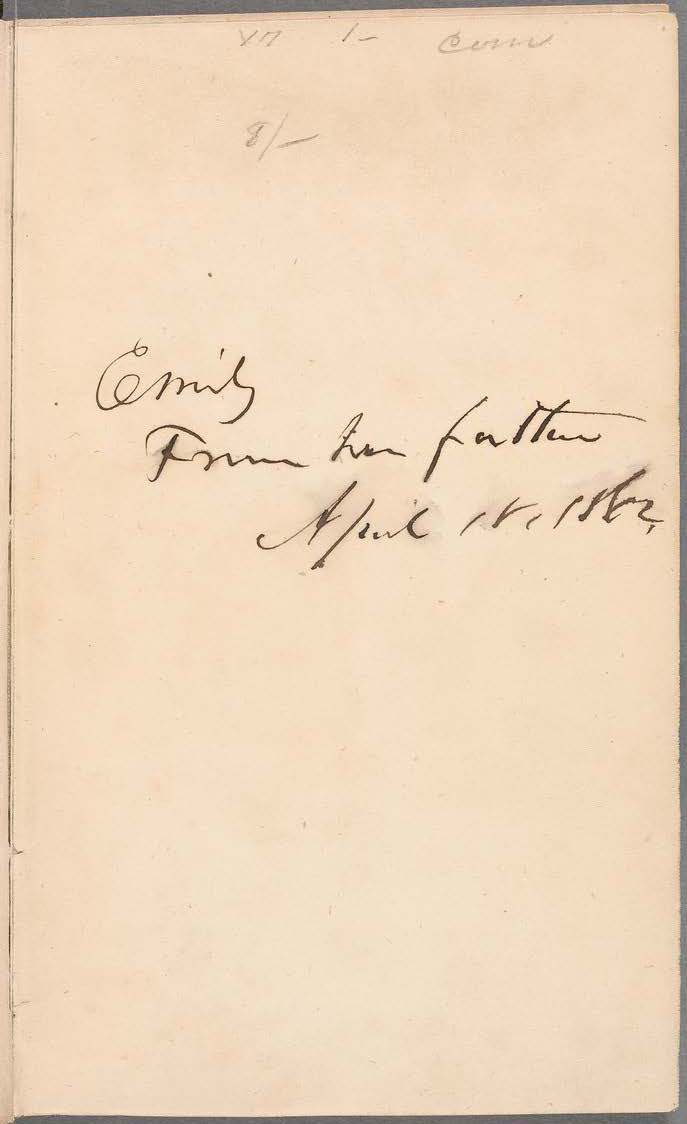 1-
8/-
Emily
From her father
April 18, 1862.